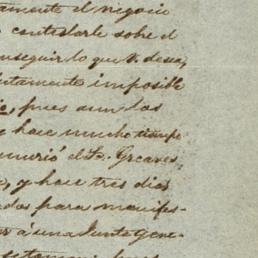 amente el negocio
contestarle sobre el
onseguir lo que V. desea,
utamente imposible
pues aun las
hace mucho tiempo
murió el Sr. Greaves
y hace tres dias
dos para manifes-
á una Junta Gene-